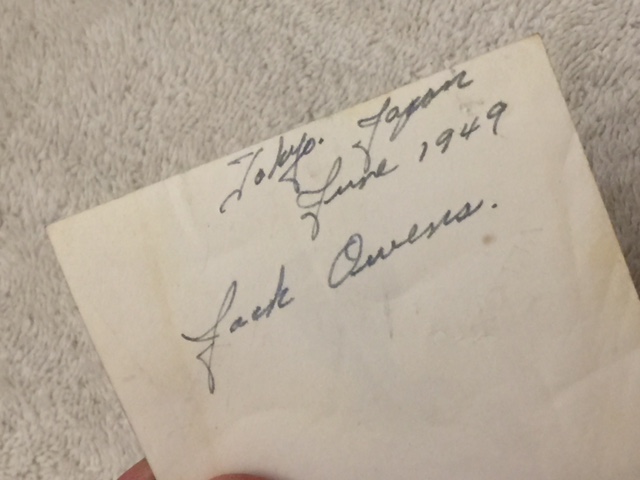 Tokyo. Japan
June 1949
Jack Owens.